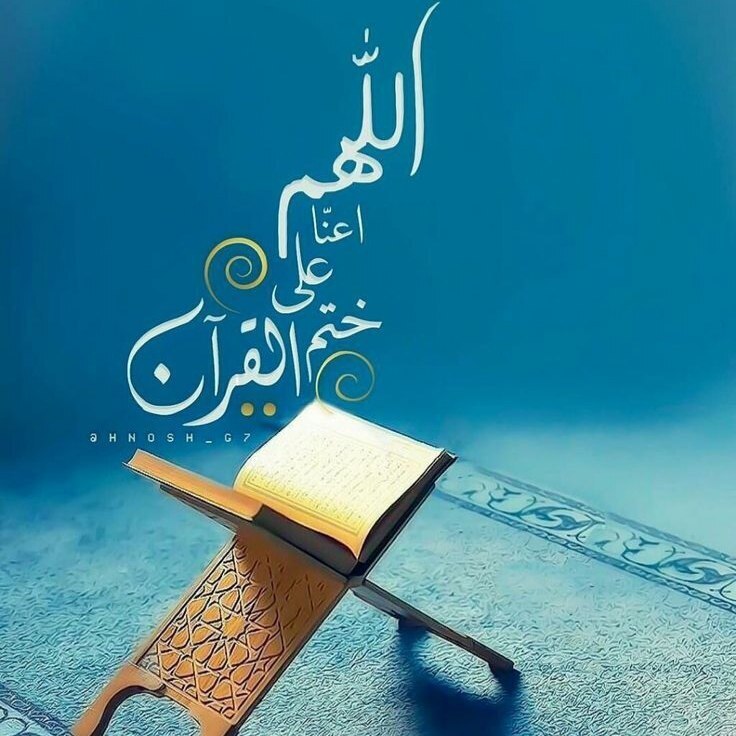 اللهم
اعنّا
على
ختم
القرآن
@HNOSH_G7